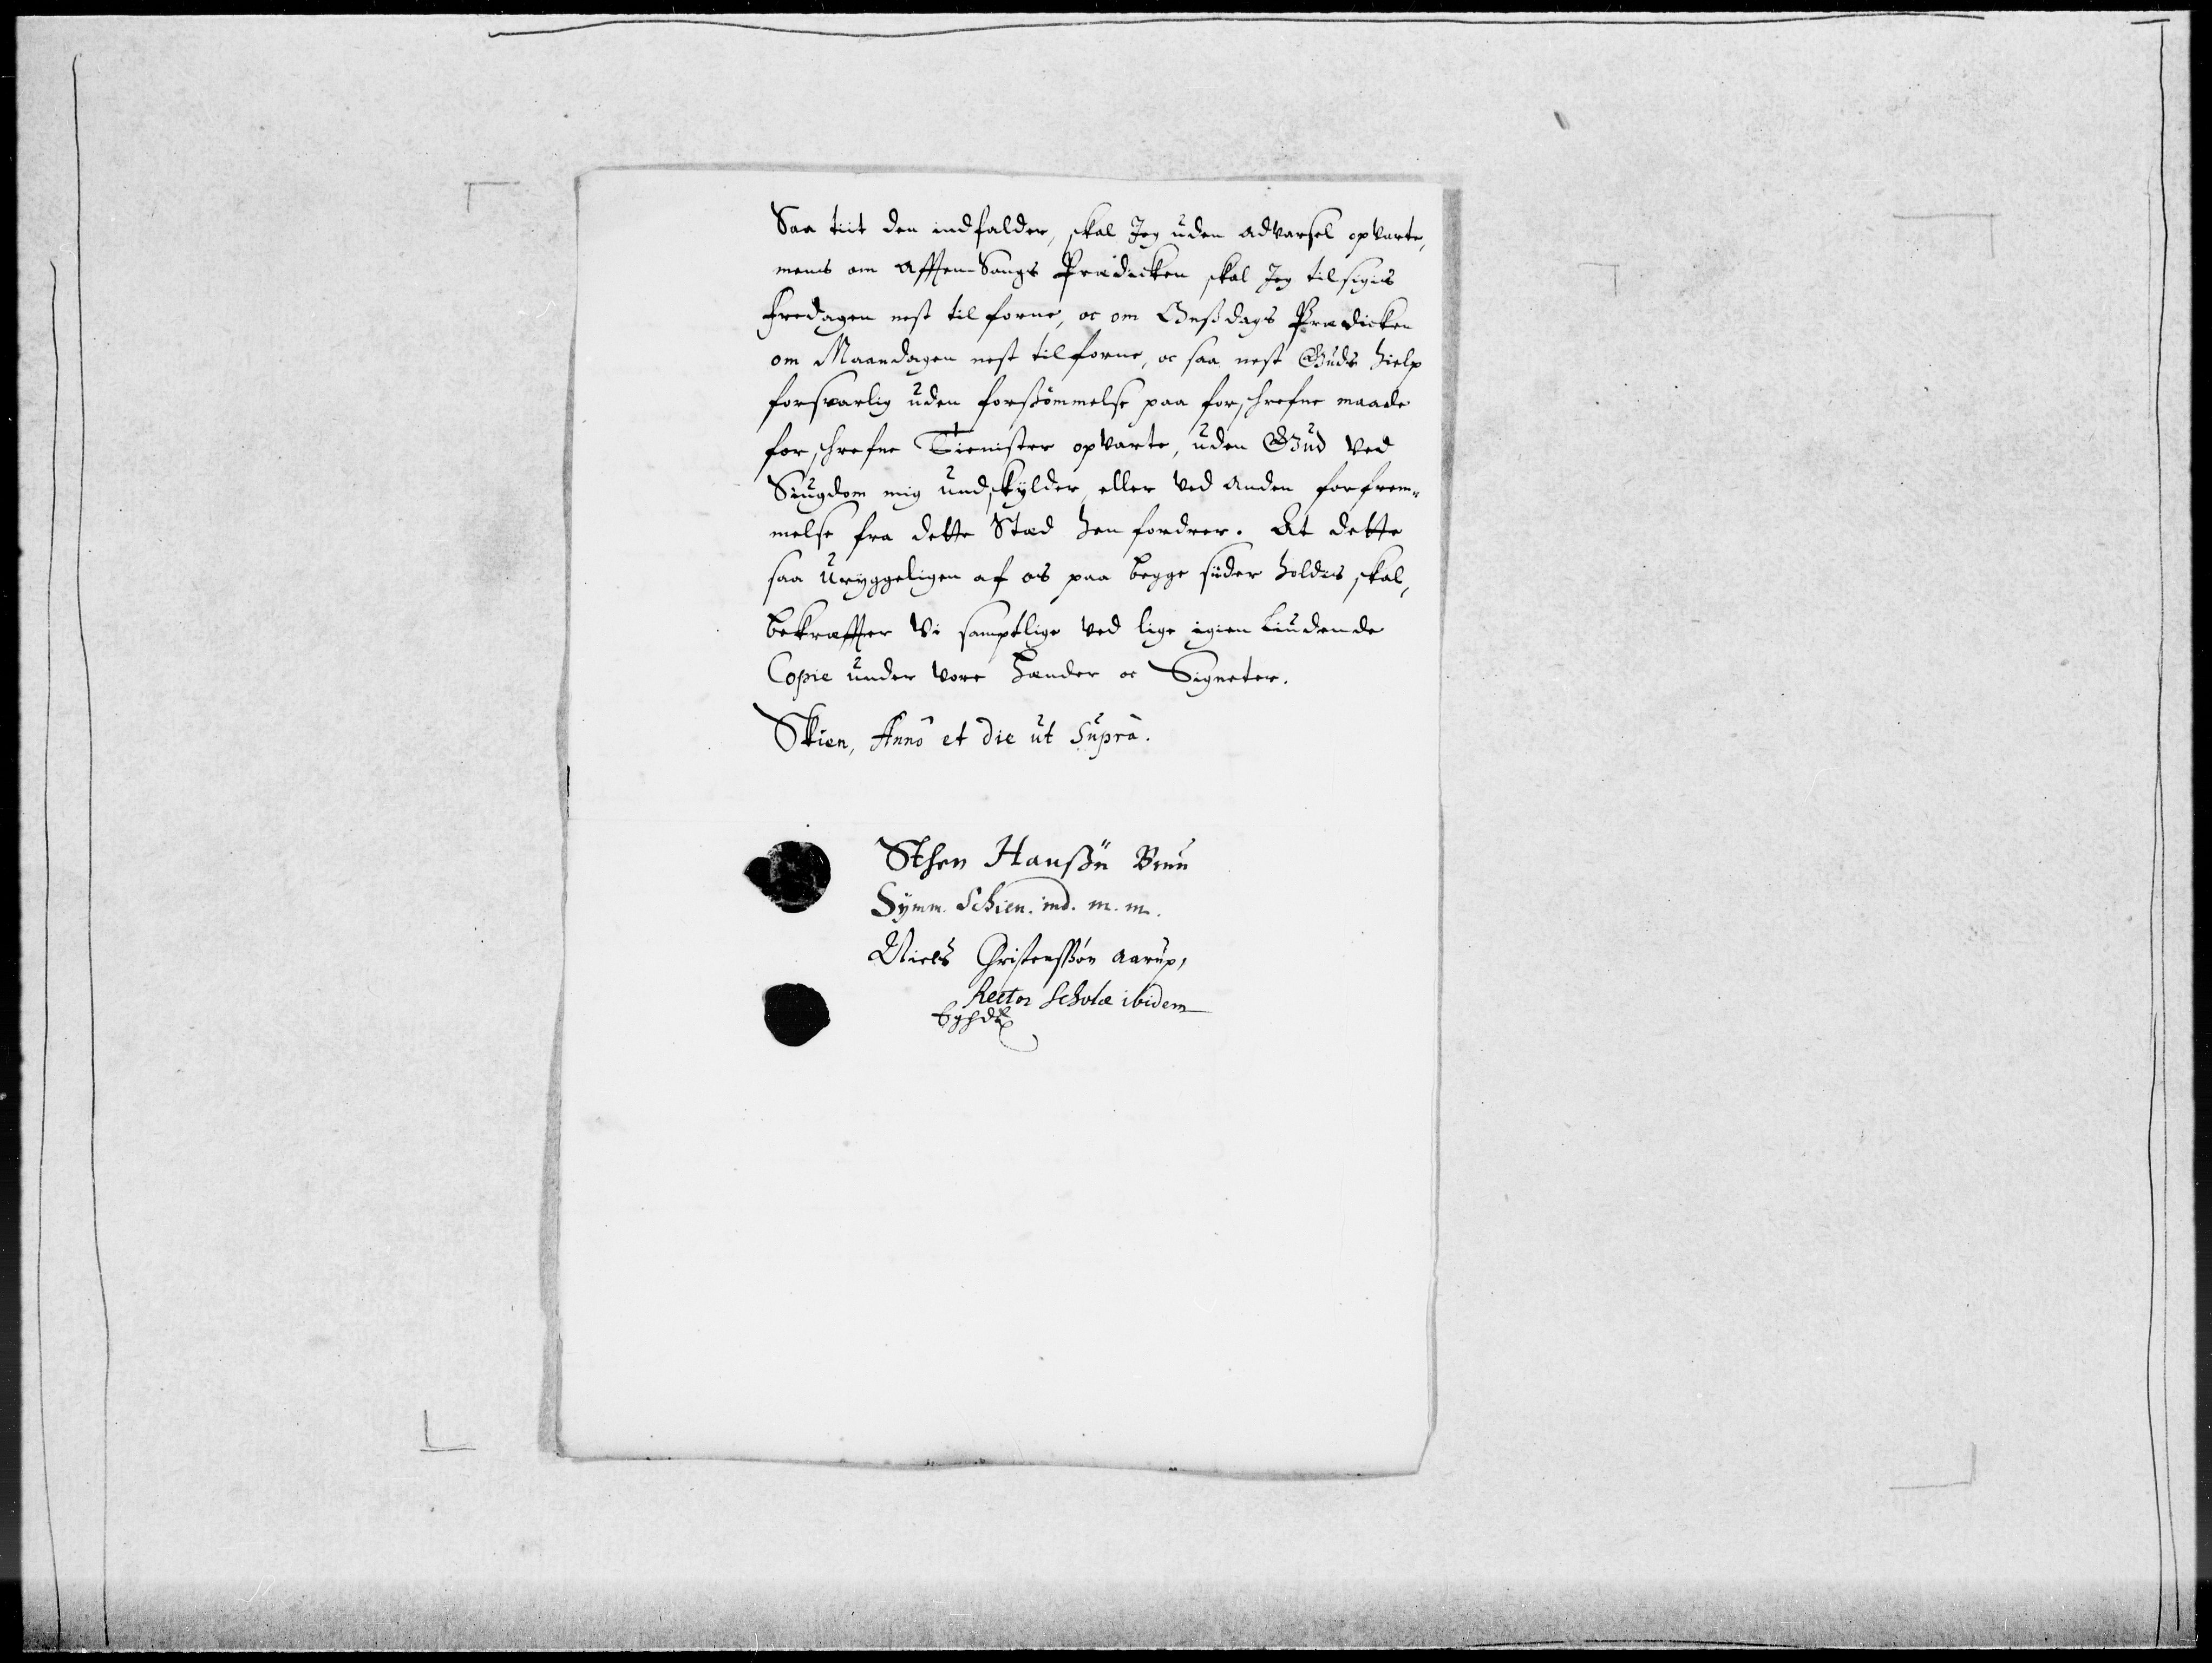 Saa tiit den indfalder, skal Jeg uden advarsel opvarte,
mens om Afften-Sangs Prædicken skal Jeg tilsigis
Fredagen nest tilforne, oc om Onsdags Prædicken
om Maandagen nest tilforne, oc saa nest Guds hielp
forsvarlig uden forsømmelse paa forschrefne maade
forschrefne Tienister opvarte, uden Gud ved
Siugdom mig undskylder, eller ved anden forfrem-
melse fra dette Stæd hen fordrer. At dette
saa uryggeligen af os paa begge siider holdes skal,
bekræffter Vi samptlige ved lige igien liudende
Copie under vore Hænder oc Signeter.
Skien, Annô et die ut suprà.
Sthen Hanßön
Symm. Schien. ind. m. m.
Niels Christenßön Aarup,
Rector Scholæ ibidem